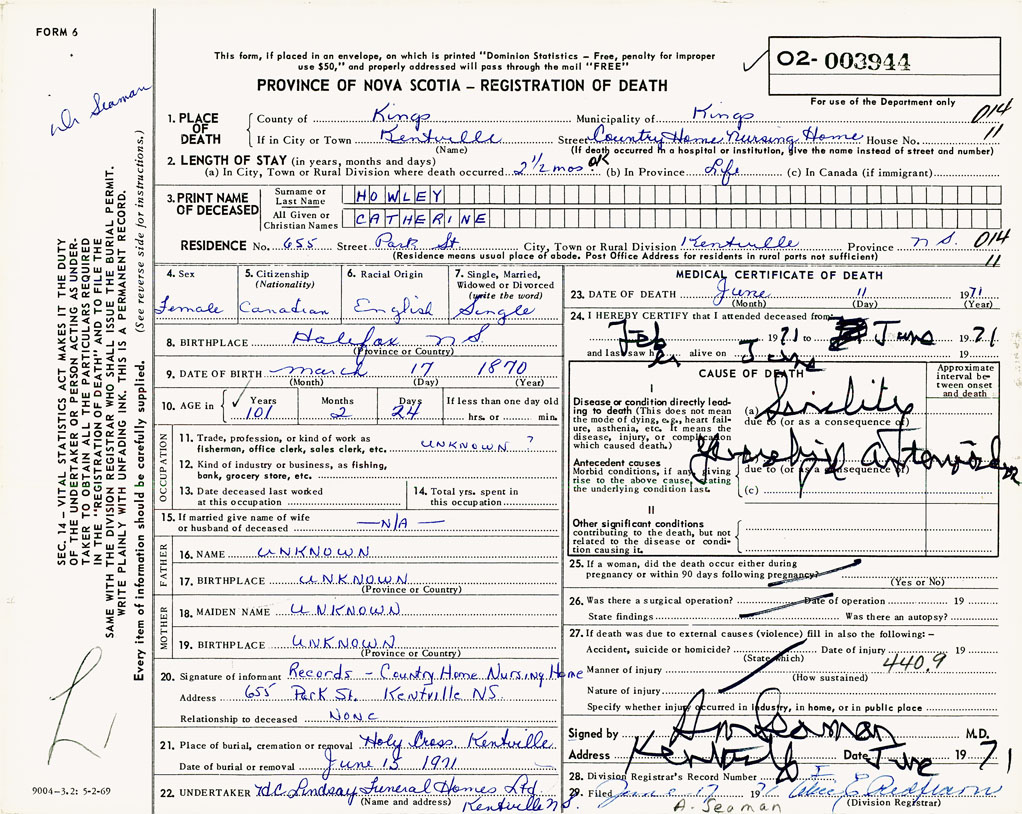 FORM 6
This form, if placed in an envelope, on which is printed "Dominion Statistics – Free, penalty for improper
use $50," and properly addressed will pass through the mail "FREE"
02- 003944
PROVINCE OF NOVA SCOTIA – REGISTRATION OF DEATH
For use of the Department only
Dr Seaman
SEC. 14 – VITAL STATISTICS ACT MAKES IT THE DUTY
OF THE UNDERTAKER OR PERSON ACTING AS UNDER-
TAKER TO OBTAIN ALL THE PARTICULARS REQUIRED
IN THE "REGISTRATION OF DEATH" AND TO FILE THE
SAME WITH THE DIVISION REGISTRAR WHO SHALL ISSUE THE BURIAL PERMIT.
WRITE PLAINLY WITH UNFADING INK. THIS IS A PERMANENT RECORD.
Every item of information should be carefully supplied. (See reverse side for instructions.)
1. PLACE OF DEATH
County of Kings Municipality of Kings 014
If in City or Town Kentville Street Country Home Nursing Home House No. 11
(Name) (If death occurred in a hospital or institution, give the name instead of street and number)
2. LENGTH OF STAY (in years, months and days)
(a) In City, Town or Rural Division where death occurred 2 1/2 mos. OK (b) In Province Life (c) In Canada (if immigrant)
3. PRINT NAME OF DECEASED
Surname or Last Name HOWLEY
All Given or Christian Names CATHERINE
RESIDENCE No. 655 Street Park St City, Town or Rural Division Kentville Province N S. 014
(Residence means usual place of abode. Post Office Address for residents in rural parts not sufficient) 11
4. Sex 5. Citizenship (Nationality) 6. Racial Origin 7. Single, Married, Widowed or Divorced (write the word)
Female Canadian English Single
8. BIRTHPLACE Halifax N S.
(Province or Country)
9. DATE OF BIRTH March 17 1870
(Month) (Day) (Year)
10. AGE in Years Months Days If less than one day old
101 2 24 hrs. or min.
OCCUPATION
11. Trade, profession, or kind of work as
fisherman, office clerk, sales clerk, etc. UNKNOWN ?
12. Kind of industry or business, as fishing,
bank, grocery store, etc.
13. Date deceased last worked
at this occupation
14. Total yrs. spent in
this occupation
15. If married give name of wife
or husband of deceased —N/A—
FATHER
16. NAME UNKNOWN
17. BIRTHPLACE UNKNOWN
(Province or Country)
MOTHER
18. MAIDEN NAME UNKNOWN
19. BIRTHPLACE UNKNOWN
(Province or Country)
20. Signature of informant Records – Country Home Nursing Home
Address 655 Park St. Kentville NS
Relationship to deceased NONE
21. Place of burial, cremation or removal Holy Cross, Kentville
Date of burial or removal June 15 1971
22. UNDERTAKER H.C. Lindsay Funeral Homes Ltd
(Name and address) Kentville N S.
9004–3.2: 5-2-69
MEDICAL CERTIFICATE OF DEATH
23. DATE OF DEATH June 11 1971
(Month) (Day) (Year)
24. I HEREBY CERTIFY that I attended deceased from
Feb 1971 to June 1971
and last saw her alive on June 19
CAUSE OF DEATH
Approximate interval between onset and death
I
Disease or condition directly lead-
ing to death (This does not mean
the mode of dying, e.g., heart fail-
ure, asthenia, etc. It means the
disease, injury, or complication
which caused death.)
(a) Senility
due to (or as a consequence of)
Antecedent causes
Morbid conditions, if any, giving
rise to the above cause, stating
the underlying condition last.
due to (or as a consequence of)
(c)
II
Other significant conditions
contributing to the death, but not
related to the disease or condi-
tion causing it.
25. If a woman, did the death occur either during
pregnancy or within 90 days following pregnancy?
(Yes or No)
26. Was there a surgical operation? Date of operation 19
State findings Was there an autopsy?
27. If death was due to external causes (violence) fill in also the following:–
Accident, suicide or homicide? Date of injury 19
(State which) 440.9
Manner of injury
(How sustained)
Nature of injury
Specify whether injury occurred in Industry, in home, or in public place
Signed by Seaman M.D.
Address Kentville Date June 1971
28. Division Registrar's Record Number
29. Filed June 17 19
(Division Registrar)
A. Seaman